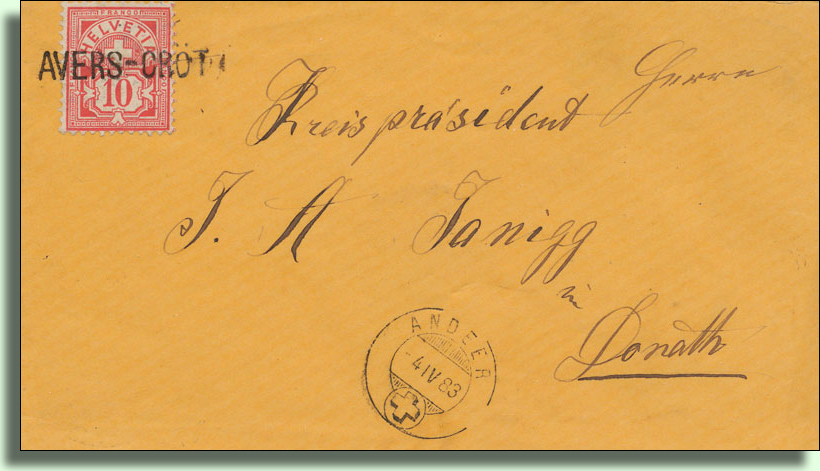 FRANCO
HELVETIA
10
AVERS-CRÖT
Herrn
Kreispräsident
J. A Janigg
in
Donath
ANDEER
-4 IV 83